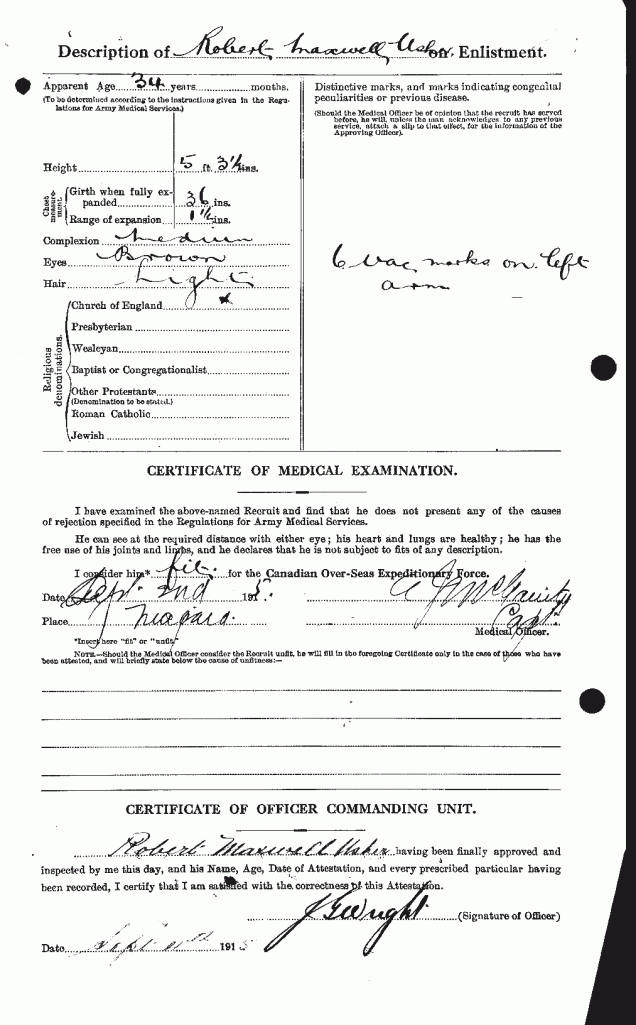 Description of Robert Maxwell Usher on Enlistment.
Apparent Age 34 years months.
(To be determined according to the instructions given in the Regulations for Army Medical Services.)
Height 5 ft. 3½ ins.
Chest measurement.
Girth when fully expanded 36 ins.
Range of expansion 1½ ins.
Complexion Medium
Eyes Brown
Hair Light
Religious denominations.
Church of England x
Presbyterian
Wesleyan
Baptist or Congregationalist
Other Protestants
(Denomination to be stated.)
Roman Catholic
Jewish
Distinctive marks, and marks indicating congenital
peculiarities or previous disease.
(Should the Medical Officer be of opinion that the recruit has served
before, he will, unless the man acknowledges to any previous
service, attach a slip to that effect, for the information of the
Approving Officer).
6 vac marks on left
arm
CERTIFICATE OF MEDICAL EXAMINATION.
I have examined the above-named Recruit and find that he does not present any of the causes
of rejection specified in the Regulations for Army Medical Services.
He can see at the required distance with either eye; his heart and lungs are healthy; he has the
free use of his joints and limbs, and he declares that he is not subject to fits of any description.
I consider him* fit. for the Canadian Over-Seas Expeditionary Force.
Date Sept. 2nd 1915.
Place Niagara.
Capt.
Medical Officer.
*Insert here "fit" or "unfit."
NOTE.—Should the Medical Officer consider the Recruit unfit, he will fill in the foregoing Certificate only in the case of those who have
been attested, and will briefly state below the cause of unfitness:—
CERTIFICATE OF OFFICER COMMANDING UNIT.
Robert Maxwell Usher having been finally approved and
inspected by me this day, and his Name, Age, Date of Attestation, and every prescribed particular having
been recorded, I certify that I am satisfied with the correctness of this Attestation.
(Signature of Officer)
Date Sept 1915